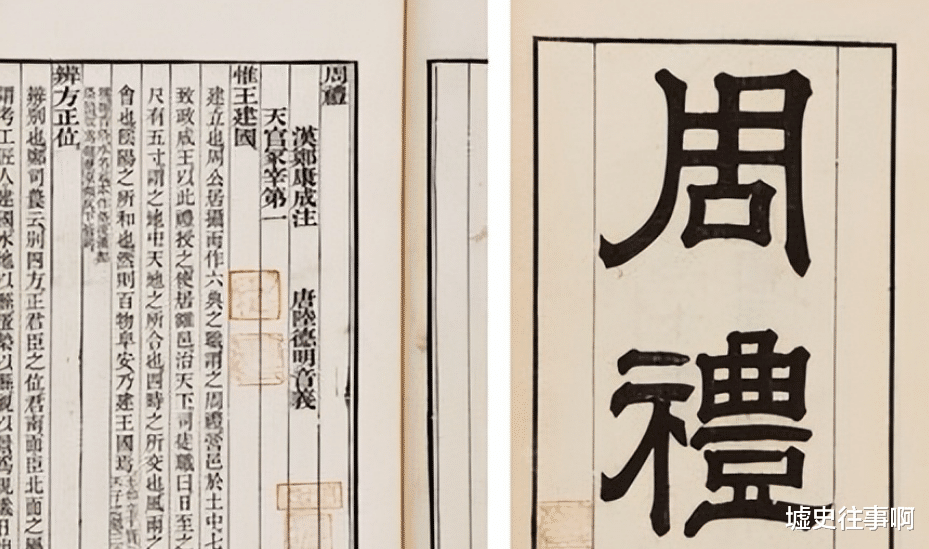 周禮
周禮
漢鄭康成注 唐陸德明音義
天官冢宰第一
惟王建國
建立也周公居攝而作六典之職謂之周禮營邑於土中七
致政成王以此禮授之使居雒邑治天下司徒職曰日至之
尺有五寸謂之地中天地之所合也四時之所交也風雨之
會也陰陽之所和也然則百物阜安乃建王國焉
辨方正位
辨別也鄭司農云別四方正君臣之位君南面臣北面之屬
謂考工匠人建國水地以縣置槷以縣眡以景為規識日出
墟史往事啊